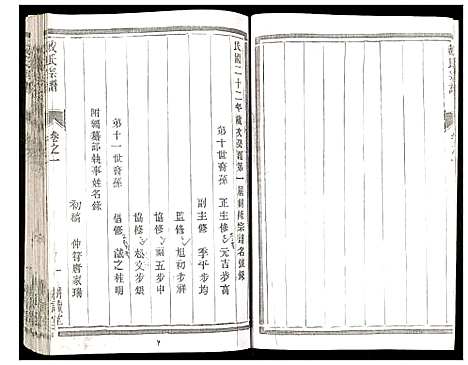 民國二十二年歲次癸酉第一屆創修宗譜名號錄
第十世裔孫 正主修 元吉步高
副主修 季平步均
監修 旭初步祥
協修 蘭五步申
協修 松文步銀
第十一世裔孫 倡修 誠之桂明
附編纂部執事姓名錄
初稿 仲符唐家瑞
氏宗譜
卷之一